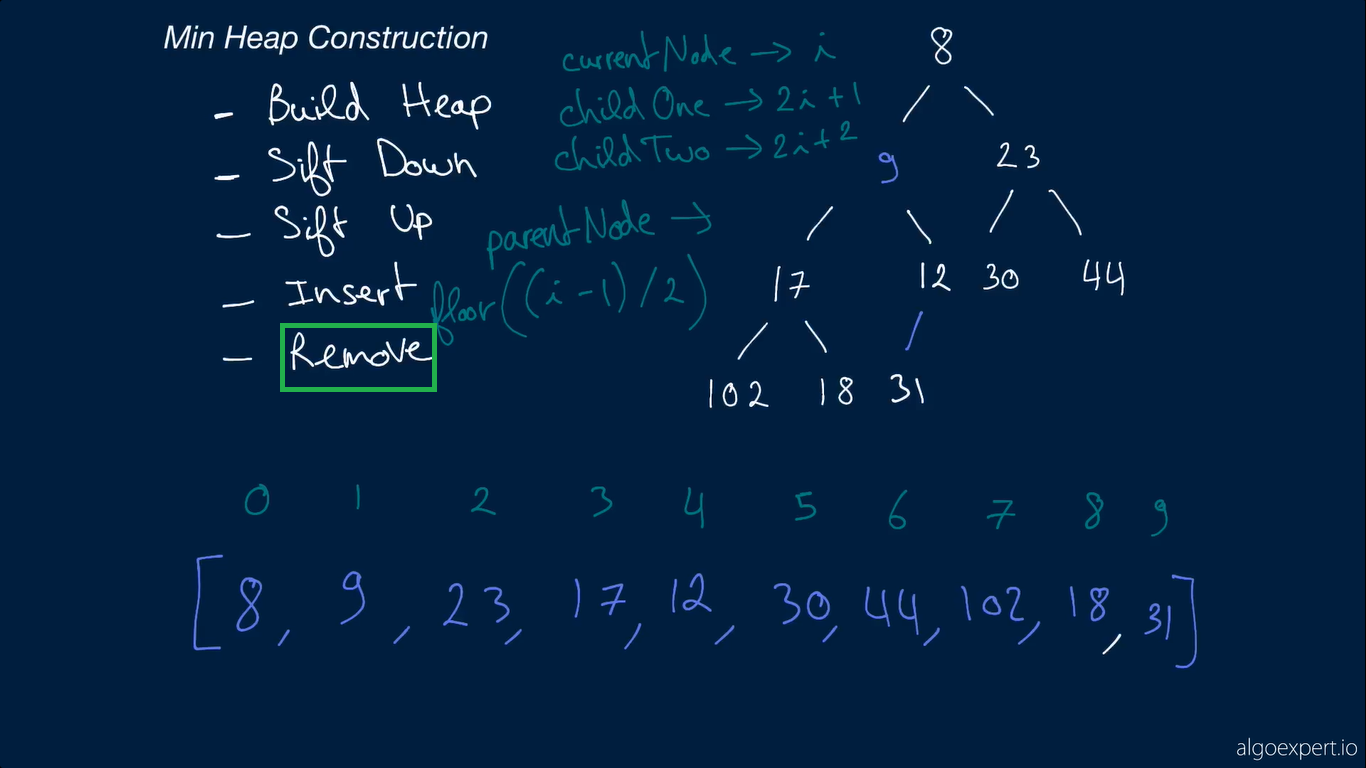 Min Heap Construction
- Build Heap
- Sift Down
- Sift Up
- Insert
- Remove
currentNode -> i
childOne -> 2i+1
childTwo -> 2i+2
parentNode ->
floor((i-1)/2)
8
9 23
17 12 30 44
102 18 31
0 1 2 3 4 5 6 7 8 9
[8, 9, 23, 17, 12, 30, 44, 102, 18, 31]
algoexpert.io